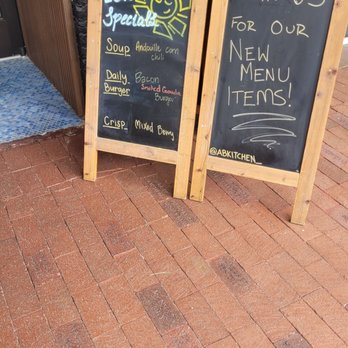 Specials
Soup Andouille corn
chili
Daily Bacon
Burger Smoked Gouda
Burger
Crisp Mixed Berry
FOR OUR
NEW
MENU
ITEMS!
@ABKITCHEN_